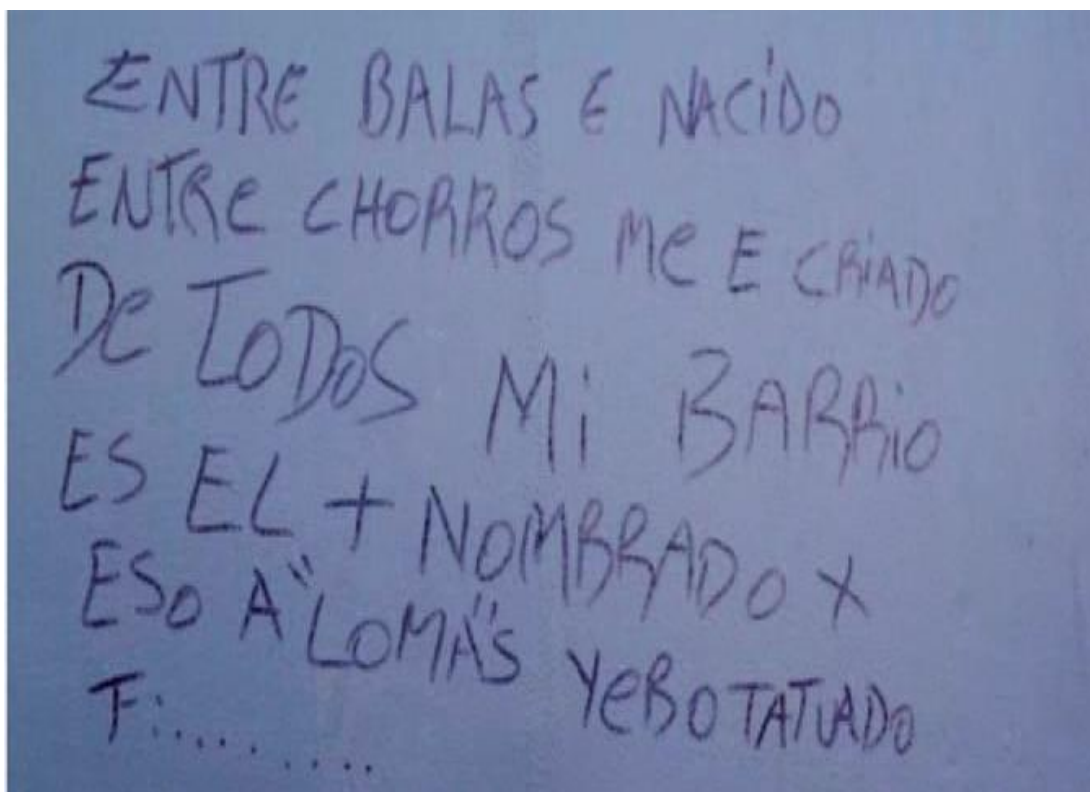 ENTRE BALAS E NACiDO
ENTRe CHORROS Me E CRiADO
De TODOS Mi BARRio
ES EL + NOMBRADO X
ESO A "LOMAS" YeBO TATUADO
F:.........